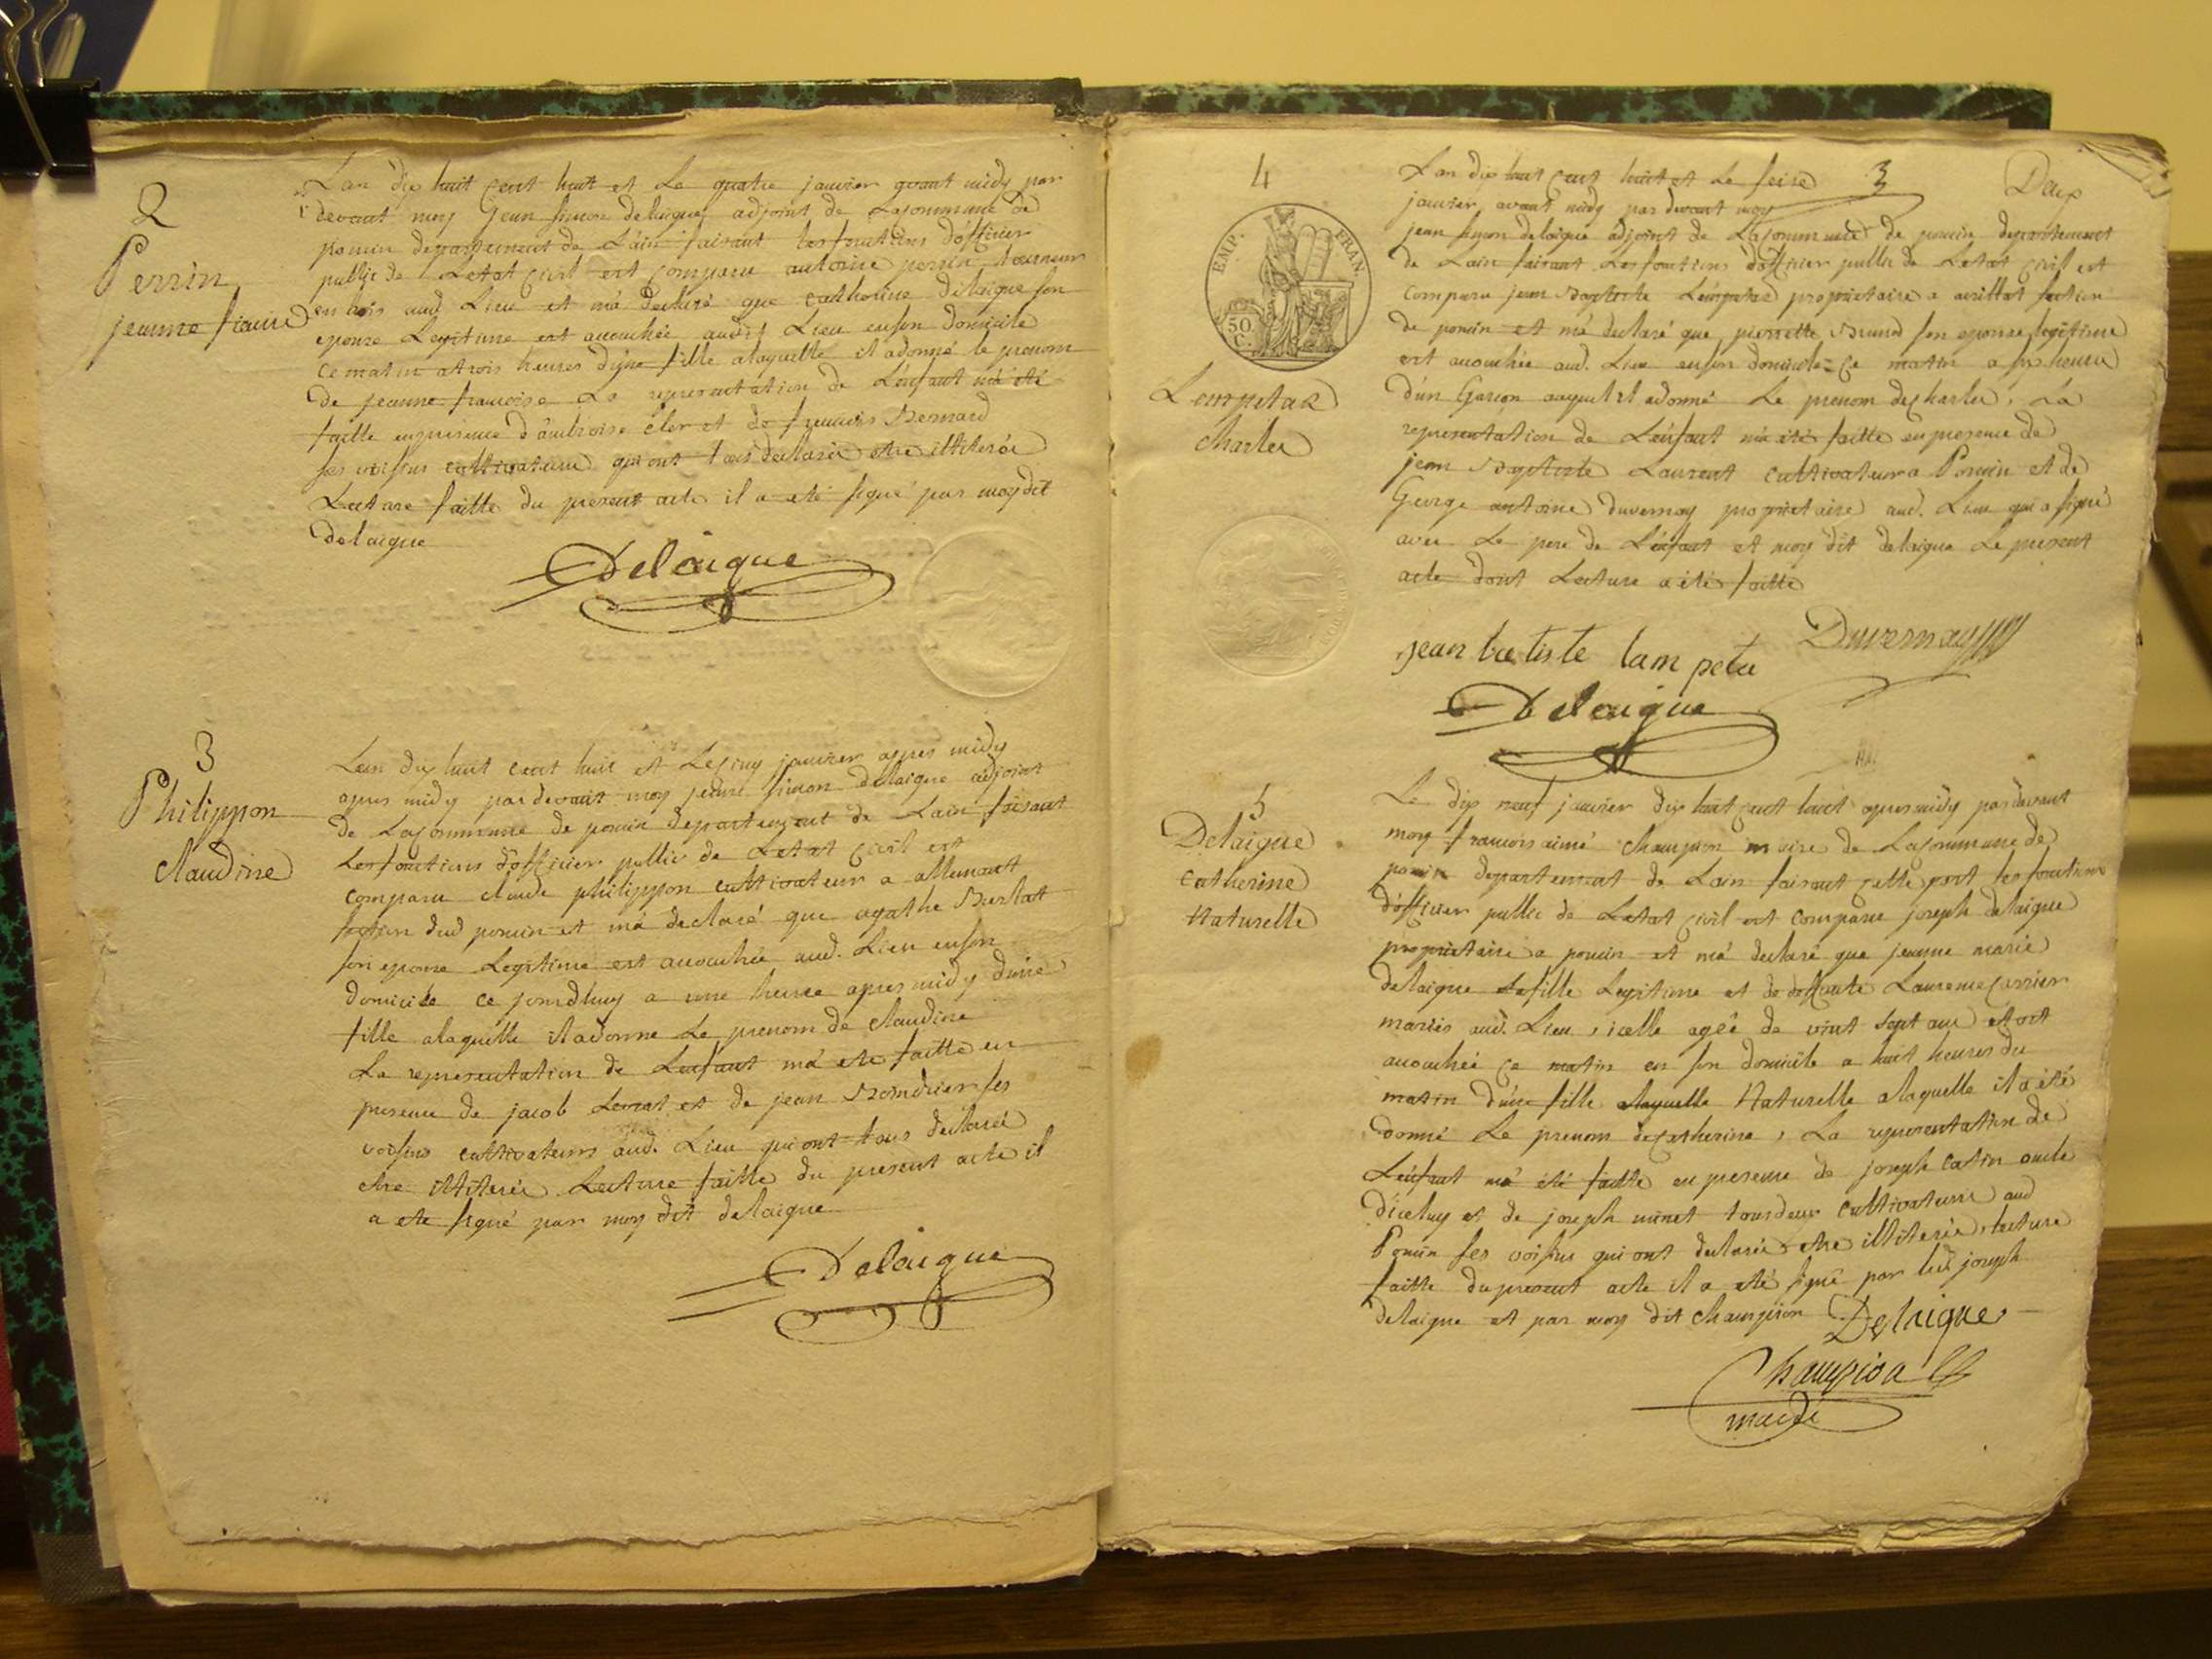 2
Perrin
jeanne francoise
L'an dix huit cent huit et Le quatre janvier avant midy par
devant moy Jean simon delaigue adjoint de La commune de
poncin departement de L'ain faisant les fonctions d'officier
public de Letat civil est comparu antoine perrin tourneur
en bois aud. Lieu et m'a declaré que catherine delaigue son
epouse Legitime est accouchée audit Lieu en son domicile
ce matin a trois heures d'une fille a laquelle il a donné le prenom
de jeanne francoise La representation de L'enfant m'a été
faitte en presence d'ambroise cler et de francois Bernard
ses voisins cultivateurs qui ont tous declarés etre illiterés
Lecture faitte du present acte il a eté signé par moy dit
delaigue
Delaigue
3
Philippon
claudine
L'an dix huit cent huit et Le cinq janvier apres midy
apres midy par devant moy jean simon delaigue adjoint
de La commune de poncin departement de L'ain faisant
Les fonctions d'officier public de Letat civil est
comparu claude philippon cultivateur a allement
section dud poncin et m'a declaré que agathe Burlat
son epouse Legitime est accouchée aud. Lieu en son
domicile ce jourdhuy a une heure apres midy d'une
fille a laquelle il a donné Le prenom de claudine
La representation de L'enfant m'a ete faitte en
presence de jacob Levrat et de jean ses
voisins cultivateurs aud. Lieu qui ont tous declarés
etre illiterés Lecture faitte du present acte il
a ete signé par moy dit delaigue
Delaigue
4
3
Deux
EMP. FRAN.
50 C.
Lempetaz
charles
L'an dix huit cent huit et Le seise
janvier avant midy par devant moy
jean simon delaigue adjoint de La commune de poncin departement
de L'ain faisant Les fonctions d'officier public de Letat civil est
comparu jean Baptiste Lempetaz propriétaire a avrillat section
de poncin et m'a declaré que pierrette Brund son epouse legitime
est accouchée aud. Lieu en son domicile ce matin a six heures
d'un Garcon auquel il a donné Le prenom de charles, La
representation de L'enfant m'a été faitte en presence de
jean Baptiste Laurent cultivateur a Poncin et de
George antoine Duvernay propriétaire aud. Lieu qui a signé
avec Le pere de L'enfant et moy dit delaigue Le present
acte dont Lecture a été faitte
jean batiste lampeta
Duvernay
Delaigue
5
Delaigue
Catherine
Naturelle
Le dix neuf janvier dix huit cent huit apres midy par devant
moy francois aimé champion maire de La commune de
poncin departement de L'ain faisant cette part les fonctions
d'officier public de Letat civil est comparu joseph delaigue
propriétaire a poncin et m'a declaré que jeanne marie
delaigue sa fille Legitime et de deffunte Laurence carrier
mariés aud. Lieu, icelle agée de vint sept ans etoit
accouchée ce matin en son domicile a huit heures du
matin d'une fille a laquelle Naturelle a laquelle il a été
donné Le prenom de catherine, La representation de
L'enfant m'a été faitte en presence de joseph catin oncle
d'iceluy et de joseph minet tous deux cultivateurs aud
Poncin ses voisins qui ont declarés etre illiterés, lecture
faitte du present acte il a eté signé par led joseph
delaigue et par moy dit champion
Delaigue
Champion
maire